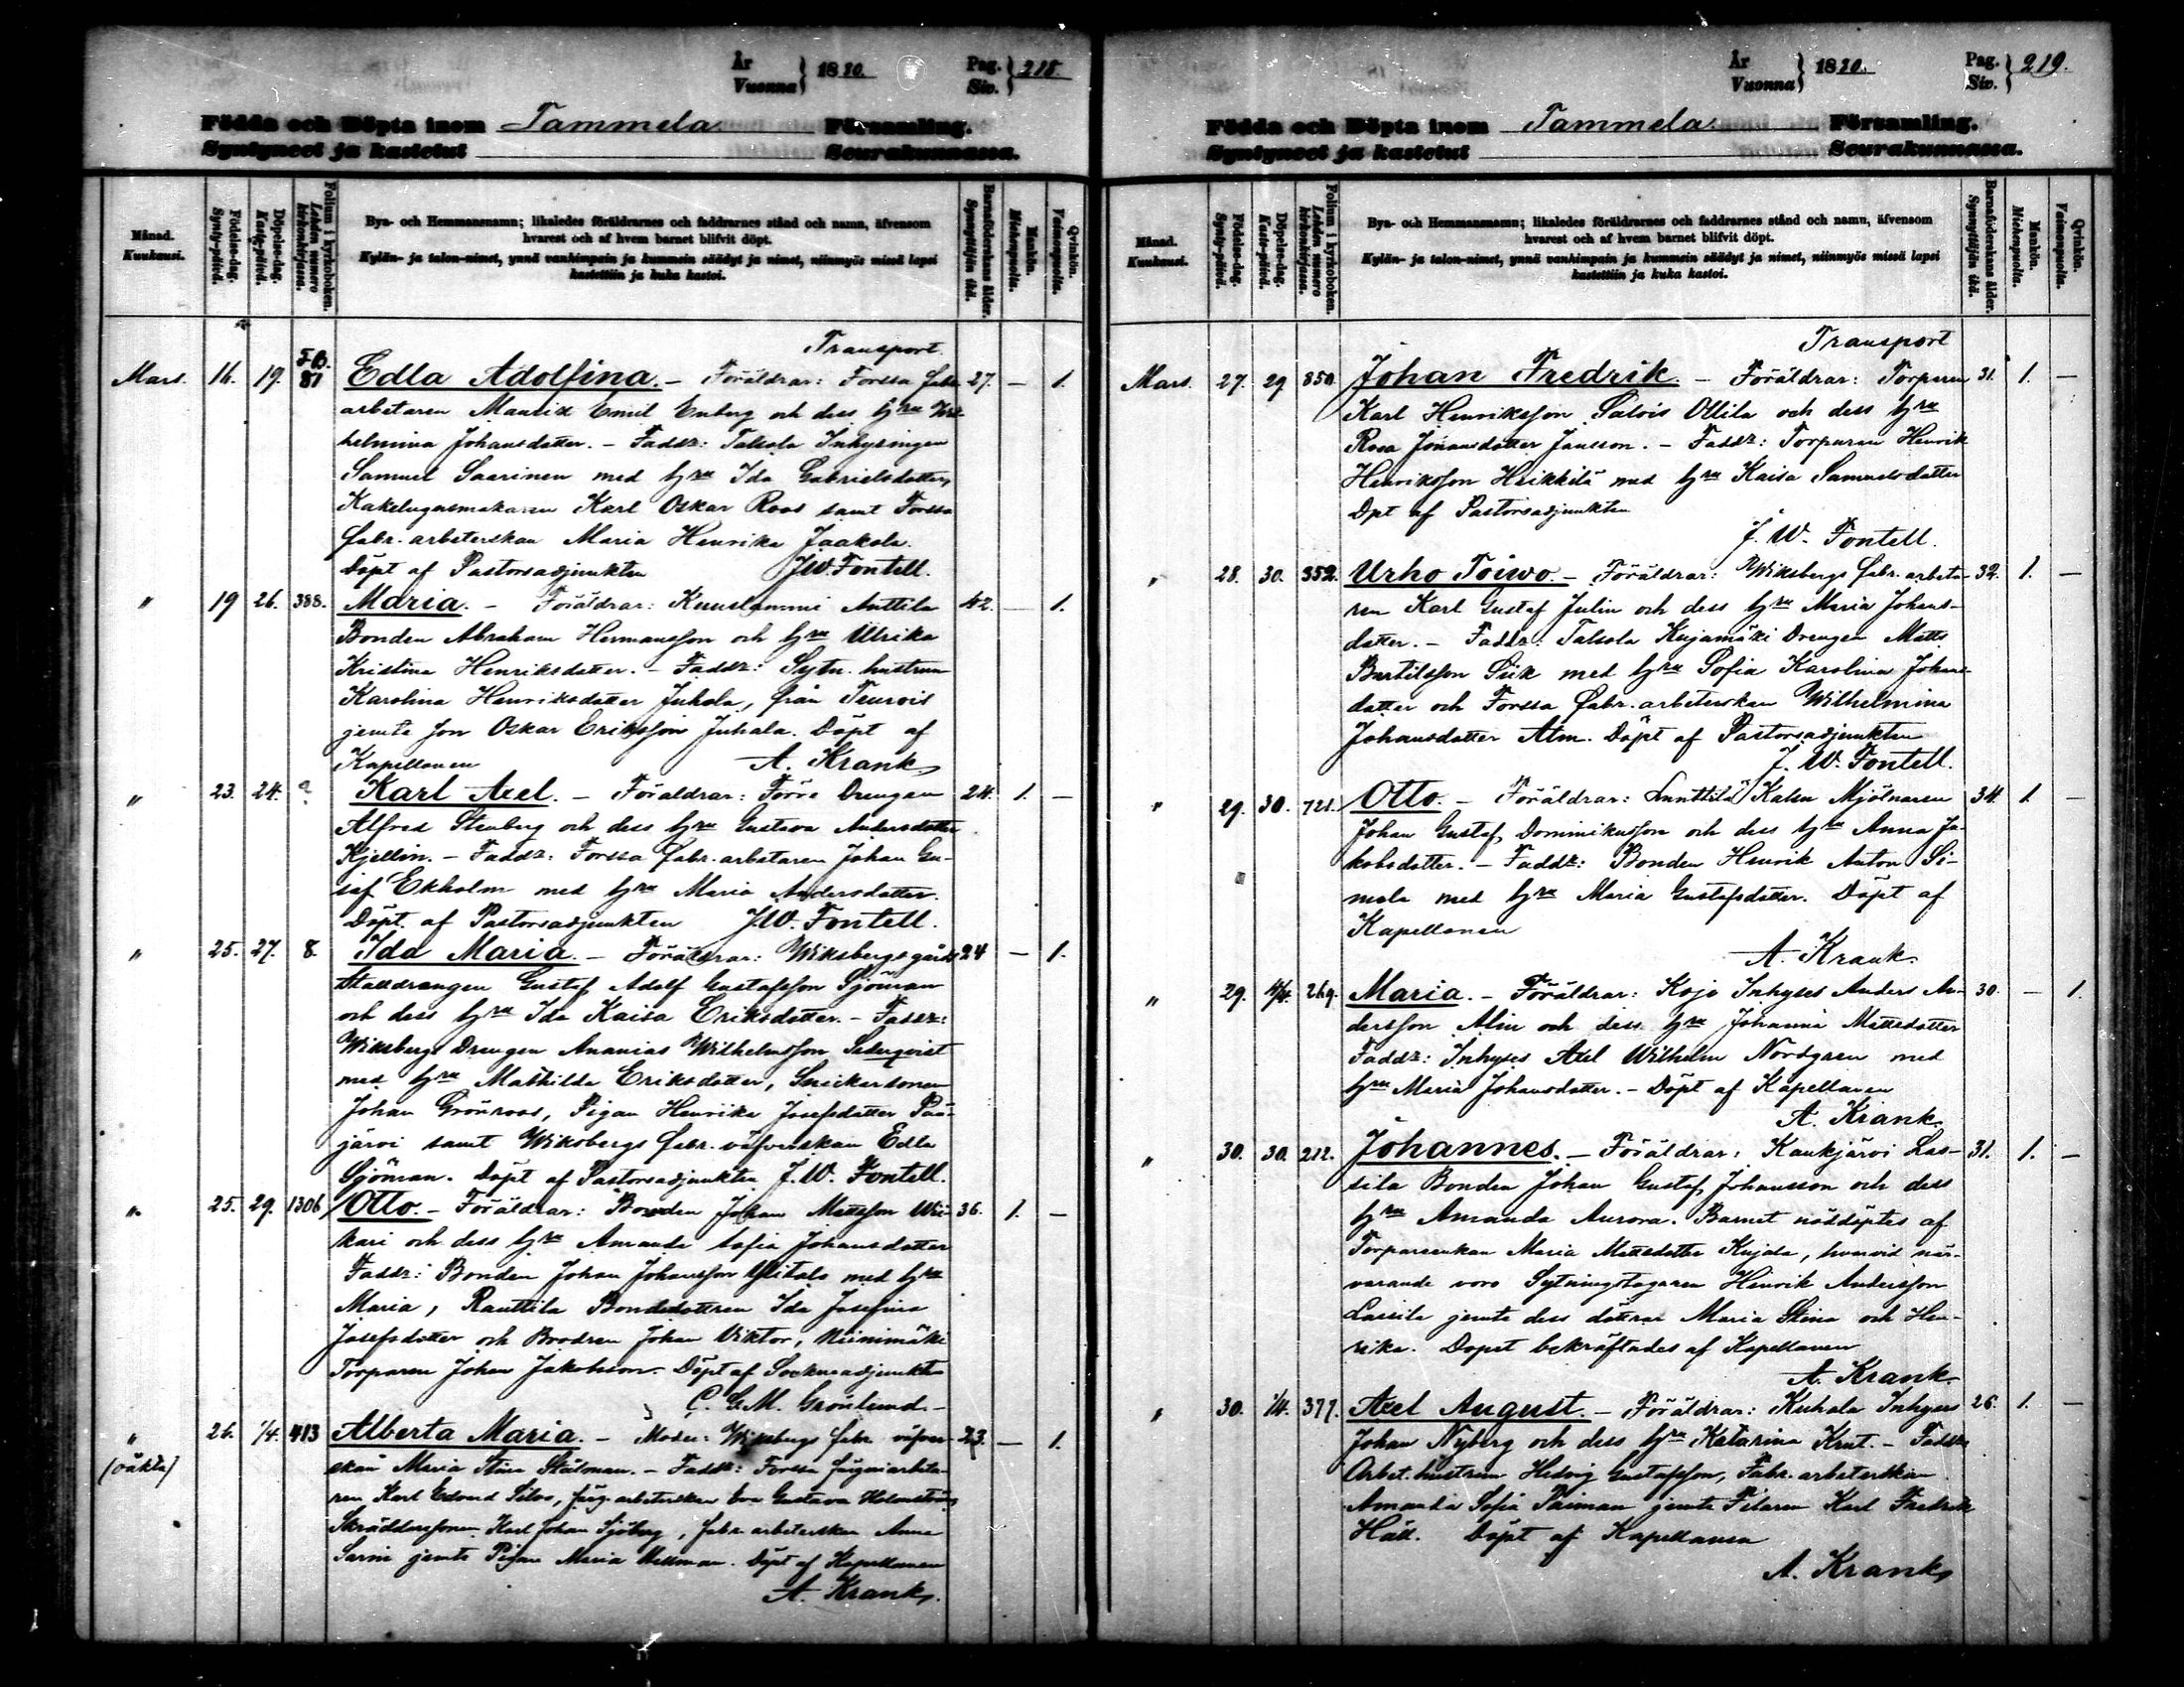 År
Vuonna } 1880.
Pag.
Siv. } 218.
Födda och Döpta inom Tammela Församling.
Syntyneet ja kastetut Seurakunnassa.
Månad. Kuukausi.
Födelse-dag. Synty-päivä.
Döpelse-dag. Kaste-päivä.
Folium i kyrkoboken. Lehden numero kirkonkirjassa.
Bya- och Hemmansnamn; likaledes föräldrarnes och faddrarnes stånd och namn, äfvensom
hvarest och af hvem barnet blifvit döpt.
Kylän- ja talon-nimet, ynnä vanhimpain ja kummein säädyt ja nimet, niinmyös missä lapsi
kastettiin ja kuka kastoi.
Barnaföderskans ålder. Synnyttäjän ikä.
Mankön. Miehenpuolia.
Qvinkön. Vaimonpuolia.
Transport.
Mars. 16. 19. F.B. 87 Edla Adolfina. – Föräldrar: Forssa fabr. 27. – 1.
arbetaren Mauritz Emil Enberg och dess hru Wil-
helmina Johansdotter. – Faddr: Talsola Inhysingen
Samuel Saarinen med hru Ida Gabrielsdotter,
Kakelugnsmakaren Karl Oskar Roos samt Forssa
fabr. arbeterskan Maria Henrika Jaakola.
Döpt af Pastorsadjunkten J.W. Fontell.
" 19 26. 388. Maria. – Föräldrar: Kuuslammi Anttila 42. – 1.
Bonden Abraham Hermansson och hru Ulrika
Kristina Henriksdotter. – Faddr: Sytn. hustrun
Karolina Henriksdotter Juhala, från Teuro
jemte son Oskar Eriksson Juhala. Döpt af
Kapellanen A. Krank.
" 23. 24. ? Karl Axel. – Föräldrar: Förre Drengen 24. 1. –
Alfred Stenberg och dess hru Gustava Andersdotter
Kjellin. – Faddr: Forssa Fabr. arbetaren Johan Gu-
staf Ekholm med hru Maria Andersdotter.
Döpt af Pastorsadjunkten J.W. Fontell.
" 25. 27. 8. Ida Maria. – Föräldrar: Wiksbergs gårds 24 – 1.
Stalldrängen Gustaf Adolf Gustafsson Sjöman
och dess hru Ida Kaisa Eriksdotter. – Faddr:
Wiksbergs Drengen Ananias Wilhelmsson Sederqvist
med hru Mathilda Eriksdotter, Snickarsonen
Johan Grönroos, Pigan Henrika Josefsdotter Pää-
järvi samt Wiksbergs Fabr. väfverskan Edla
Sjöman. Döpt af Pastorsadjunkten J.W. Fontell.
" 25. 29. 1306 Otto. – Föräldrar: Bonden Johan Mattsson Wii- 36. 1. –
kari och dess hru Amanda Sofia Johansdotter
Faddr: Bonden Johan Johansson Ylitalo med hru
Maria, Rauttila Bondedottren Ida Josefina
Josefsdotter och Brodren Johan Viktor, Niinimäki
Torparen Johan Jakobsson. Döpt af Sockneadjunkten
C. G. M. Grönlund. –
" (oäkta) 26. 1/4. 413 Alberta Maria. – Moder: Wiksbergs fabr. väfver- 23. – 1.
skan Maria Stina Stålman. – Faddr: Forssa färgeriarbeta-
ren Karl Edvard Silos, färg. arbeterskan Eva Gustava Holmström
Skräddaresonen Karl Johan Sjöberg, fabr. arbeterskan Anna
Sarin jemte Pigan Maria Wellman. Döpt af Kapellanen
A. Krank.
År
Vuonna } 1880.
Pag.
Siv. } 219.
Födda och Döpta inom Tammela. Församling.
Syntyneet ja kastetut Seurakunnassa.
Månad. Kuukausi.
Födelse-dag. Synty-päivä.
Döpelse-dag. Kaste-päivä.
Folium i kyrkoboken. Lehden numero kirkonkirjassa.
Bya- och Hemmansnamn; likaledes föräldrarnes och faddrarnes stånd och namn, äfvensom
hvarest och af hvem barnet blifvit döpt.
Kylän- ja talon-nimet, ynnä vanhimpain ja kummein säädyt ja nimet, niinmyös missä lapsi
kastettiin ja kuka kastoi.
Barnaföderskans ålder. Synnyttäjän ikä.
Mankön. Miehenpuolia.
Qvinkön. Vaimonpuolia.
Transport
Mars. 27. 29 850. Johan Fredrik. – Föräldrar: Torparen 31. 1. –
Karl Henriksson Salois Ollila och dess hru
Rosa Johansdotter Jansson. – Faddr: Torparen Henrik
Henriksson Heikkilä med hru Kaisa Samuelsdotter
Dpt af Pastorsadjunkten
J. W. Fontell.
" 28. 30. 352. Urho Toiwo. – Föräldrar: Wiksbergs fabr. arbeta- 32. 1. –
ren Karl Gustaf Julin och dess hru Maria Johans-
dotter. – Faddr: Talsola Kujamäki Drengen Matts
Bertilsson Siik med hru Sofia Karolina Johans-
dotter och Forssa Fabr. arbeterskan Wilhelmina
Johansdotter Alm. Döpt af Pastorsadjunkten
J. W. Fontell.
" 29. 30. 721. Otto. – Föräldrar: Lunttila Kahn Mjölnaren 34. 1. –
Johan Gustaf Dominikusson och dess hru Anna Ja-
kobsdotter. – Faddr: Bonden Henrik Anton Si-
mola med hru Maria Gustafsdotter. Döpt af
Kapellanen
A. Krank.
" 29. 4/4. 269. Maria. – Föräldrar: Kojo Inhyses Anders An- 30. – 1.
dersson Alin och dess hru Johanna Mattsdotter
Faddr: Inhyses Axel Wilhelm Nordgren med
hru Maria Johansdotter. – Döpt af Kapellanen
A. Krank.
" 30. 30. 212. Johannes. – Föräldrar: Kaukjärvi Las- 31. 1. –
sila Bonden Johan Gustaf Johansson och dess
hru Amanda Aurora. Barnet nöddöptes af
Torpareenkan Maria Mattsdotter Kujala, hvarvid när-
varande voro Sytningstagaren Henrik Andersson
Lassila jemte dess döttrar Maria Stina och Hen-
rika. Dopet bekräftades af Kapellanen
A. Krank.
" 30. 1/4. 377. Axel August. – Föräldrar: Kuhala Inhyses 26. 1. –
Johan Nyberg och dess hru Katarina Knut. – Faddr
Arbet. hustrun Hedvig Gustafsson, Fabr. arbeterskan
Amanda Sofia Paiman jemte Filaren Karl Fredrik
Häll. Döpt af Kapellanen
A. Krank